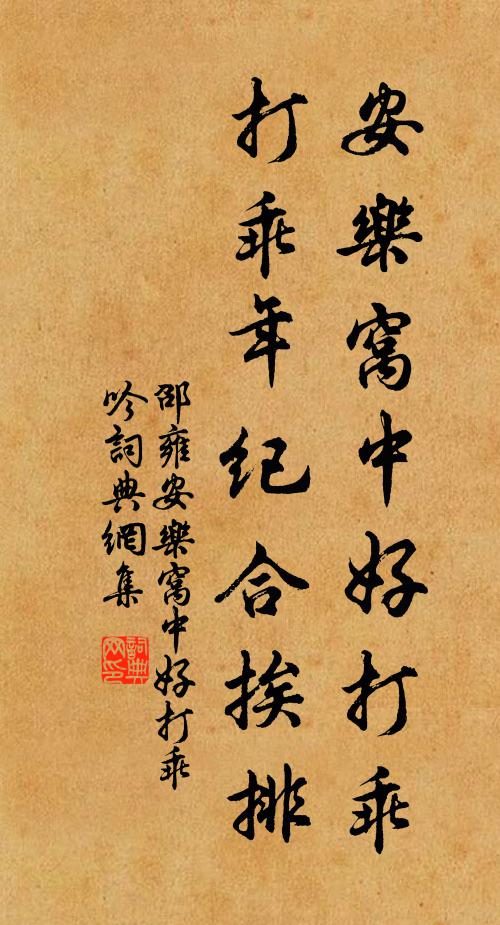 安樂窩中好打乖
打乖年紀合挨排
邵雍安樂窩中好打乖
吟詞典網集
詞典网印